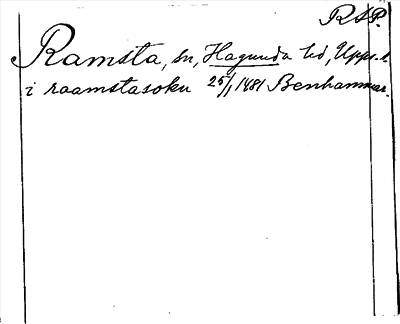 RAP.
Ramsta, sn, Hagunda hd, Upps. l.
i raamstasoku 25/1 1481 Benhammar.